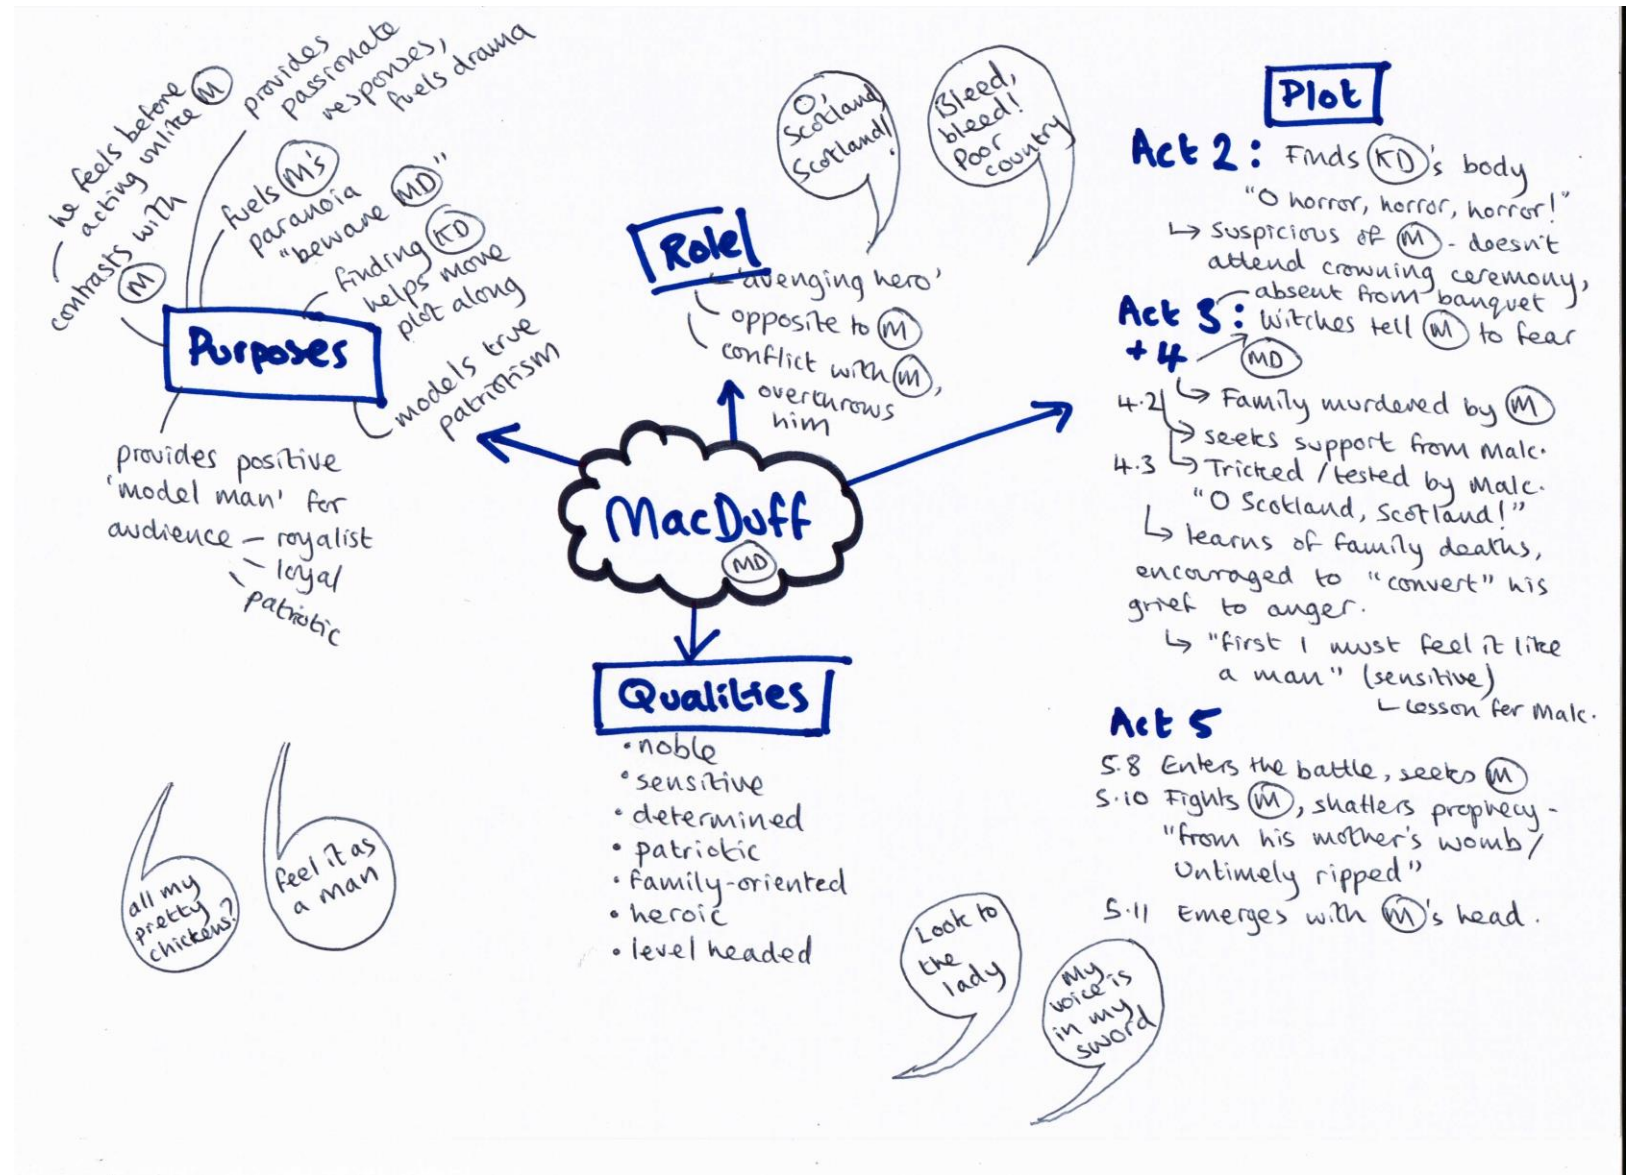 he feels before
acting unlike M
contrasts with
M
provides
passionate
responses,
fuels drama
fuels M's
paranoia
"beware MD"
finding KD
helps move
plot along
models true
patriotism
Purposes
provides positive
'model man' for
audience – royalist
– loyal
patriotic
O,
Scotland,
Scotland!
Bleed,
bleed!
Poor
country
Role
'avenging hero'
opposite to M
conflict with M,
overthrows
him
MacDuff
MD
Qualities
• noble
• sensitive
• determined
• patriotic
• family-oriented
• heroic
• level headed
all my
pretty
chickens?
feel it as
a man
Look to
the
lady
My
voice is
in my
sword
Plot
Act 2: Finds KD's body
"O horror, horror, horror!"
↳ suspicious of M - doesn't
attend crowning ceremony,
absent from banquet
Act 3: Witches tell M to fear
+ 4 MD
4.2 ↳ Family murdered by M
↳ seeks support from Malc.
4.3 ↳ Tricked/tested by Malc.
"O Scotland, Scotland!"
↳ learns of family deaths,
encouraged to "convert" his
grief to anger.
↳ "first I must feel it like
a man" (sensitive)
Lesson for Malc.
Act 5
5.8 Enters the battle, seeks M
5.10 Fights M, shatters prophecy -
"from his mother's womb/
Untimely ripped"
5.11 Emerges with M's head.